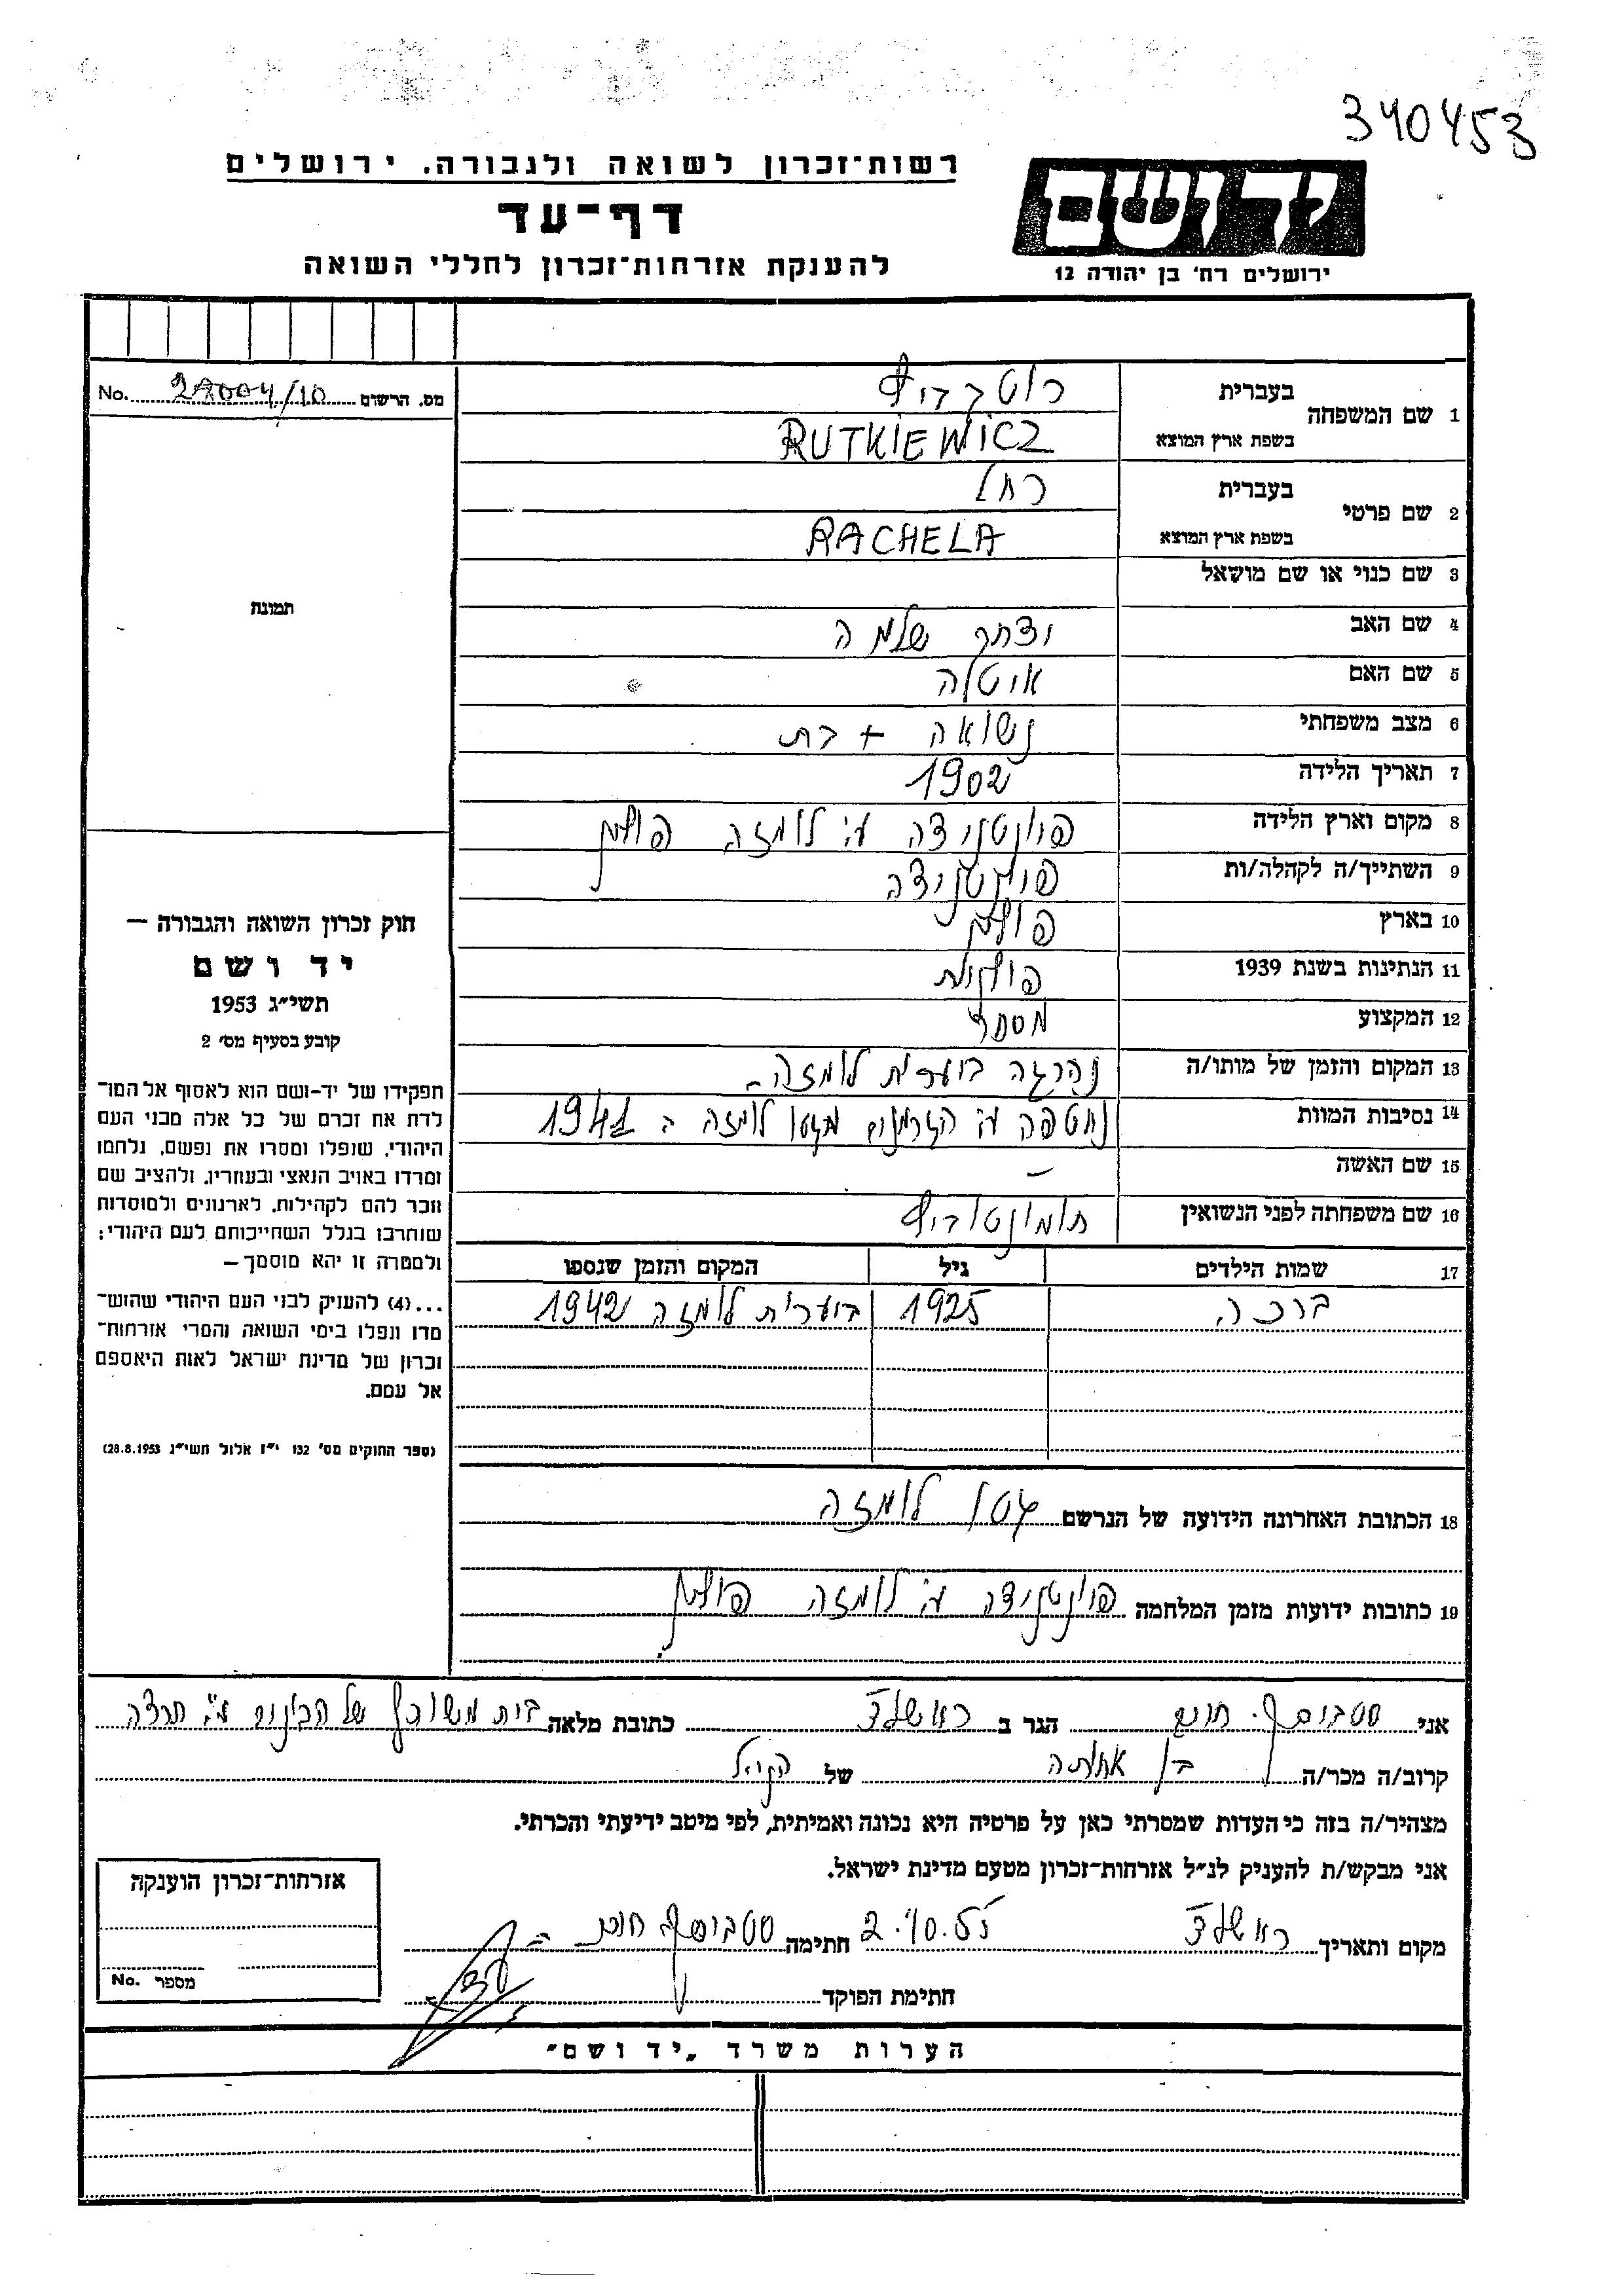 340453
יד ושם
ירושלים רח' בן יהודה 12
רשות־זכרון לשואה ולגבורה, ירושלים
דף־עד
להענקת אזרחות־זכרון לחללי השואה
מס. הרשום 27004/10 No.
1 שם המשפחה בעברית רוטקביץ
בשפת ארץ המוצא RUTKIEWICZ
2 שם פרטי בעברית רחל
בשפת ארץ המוצא RACHELA
3 שם כנוי או שם מושאל
4 שם האב יצחק שלמה
5 שם האם איטלה
6 מצב משפחתי נשואה + בת
7 תאריך הלידה 1902
8 מקום וארץ הלידה פיונטניצה ע"י לומזה פולין
9 השתייך/ה לקהלה/ות פיונטניצה
10 בארץ פולין
11 הנתינות בשנת 1939 פולנית
12 המקצוע מסחר
13 המקום והזמן של מותו/ה נהרגה ביערית לומזה
14 נסיבות המוות נחטפה ע"י הגרמנים מגטו לומזה ב 1941
15 שם האשה –
16 שם משפחתה לפני הנשואין
17 שמות הילדים גיל המקום והזמן שנספו
ברכה 1925 ביערית לומזה 1942
18 הכתובת האחרונה הידועה של הנרשם גטו לומזה
19 כתובות ידועות מזמן המלחמה פיונטניצה ע"י לומזה פולין
תמונת
חוק זכרון השואה והגבורה –
יד ושם
תשי"ג 1953
קובע בסעיף מס' 2
תפקידו של יד-ושם הוא לאסוף אל המו־
לדת את זכרם של כל אלה מבני העם
היהודי, שנפלו ומסרו את נפשם, נלחמו
ומרדו באויב הנאצי ובעוזריו, ולהציב שם
וזכר להם לקהילות, לארגונים ולמוסדות
שוחרבו בגלל השתייכותם לעם היהודי;
ולמטרה זו יהא מוסמך –
...(4) להעניק לבני העם היהודי שהוש־
מדו ונפלו בימי השואה והמרי אזרחות־
זכרון של מדינת ישראל לאות היאספם
אל עמם.
(ספר החוקים מס' 132 י"ז אלול תשי"ג 28.8.1953)
אני הגר ב ראשל"צ כתובת מלאה בית משותף של
קרוב/ה מכר/ה בן אחותה של הנ"ל
מצהיר/ה בזה כי העדות שמסרתי כאן על פרטיה היא נכונה ואמיתית, לפי מיטב ידיעתי והכרתי.
אני מבקש/ת להעניק לנ"ל אזרחות־זכרון מטעם מדינת ישראל.
מקום ותאריך ראשל"צ 2.10.55 חתימה
חתימת הפוקד
אזרחות־זכרון הוענקה
מספר No.
הערות משרד „יד ושם"